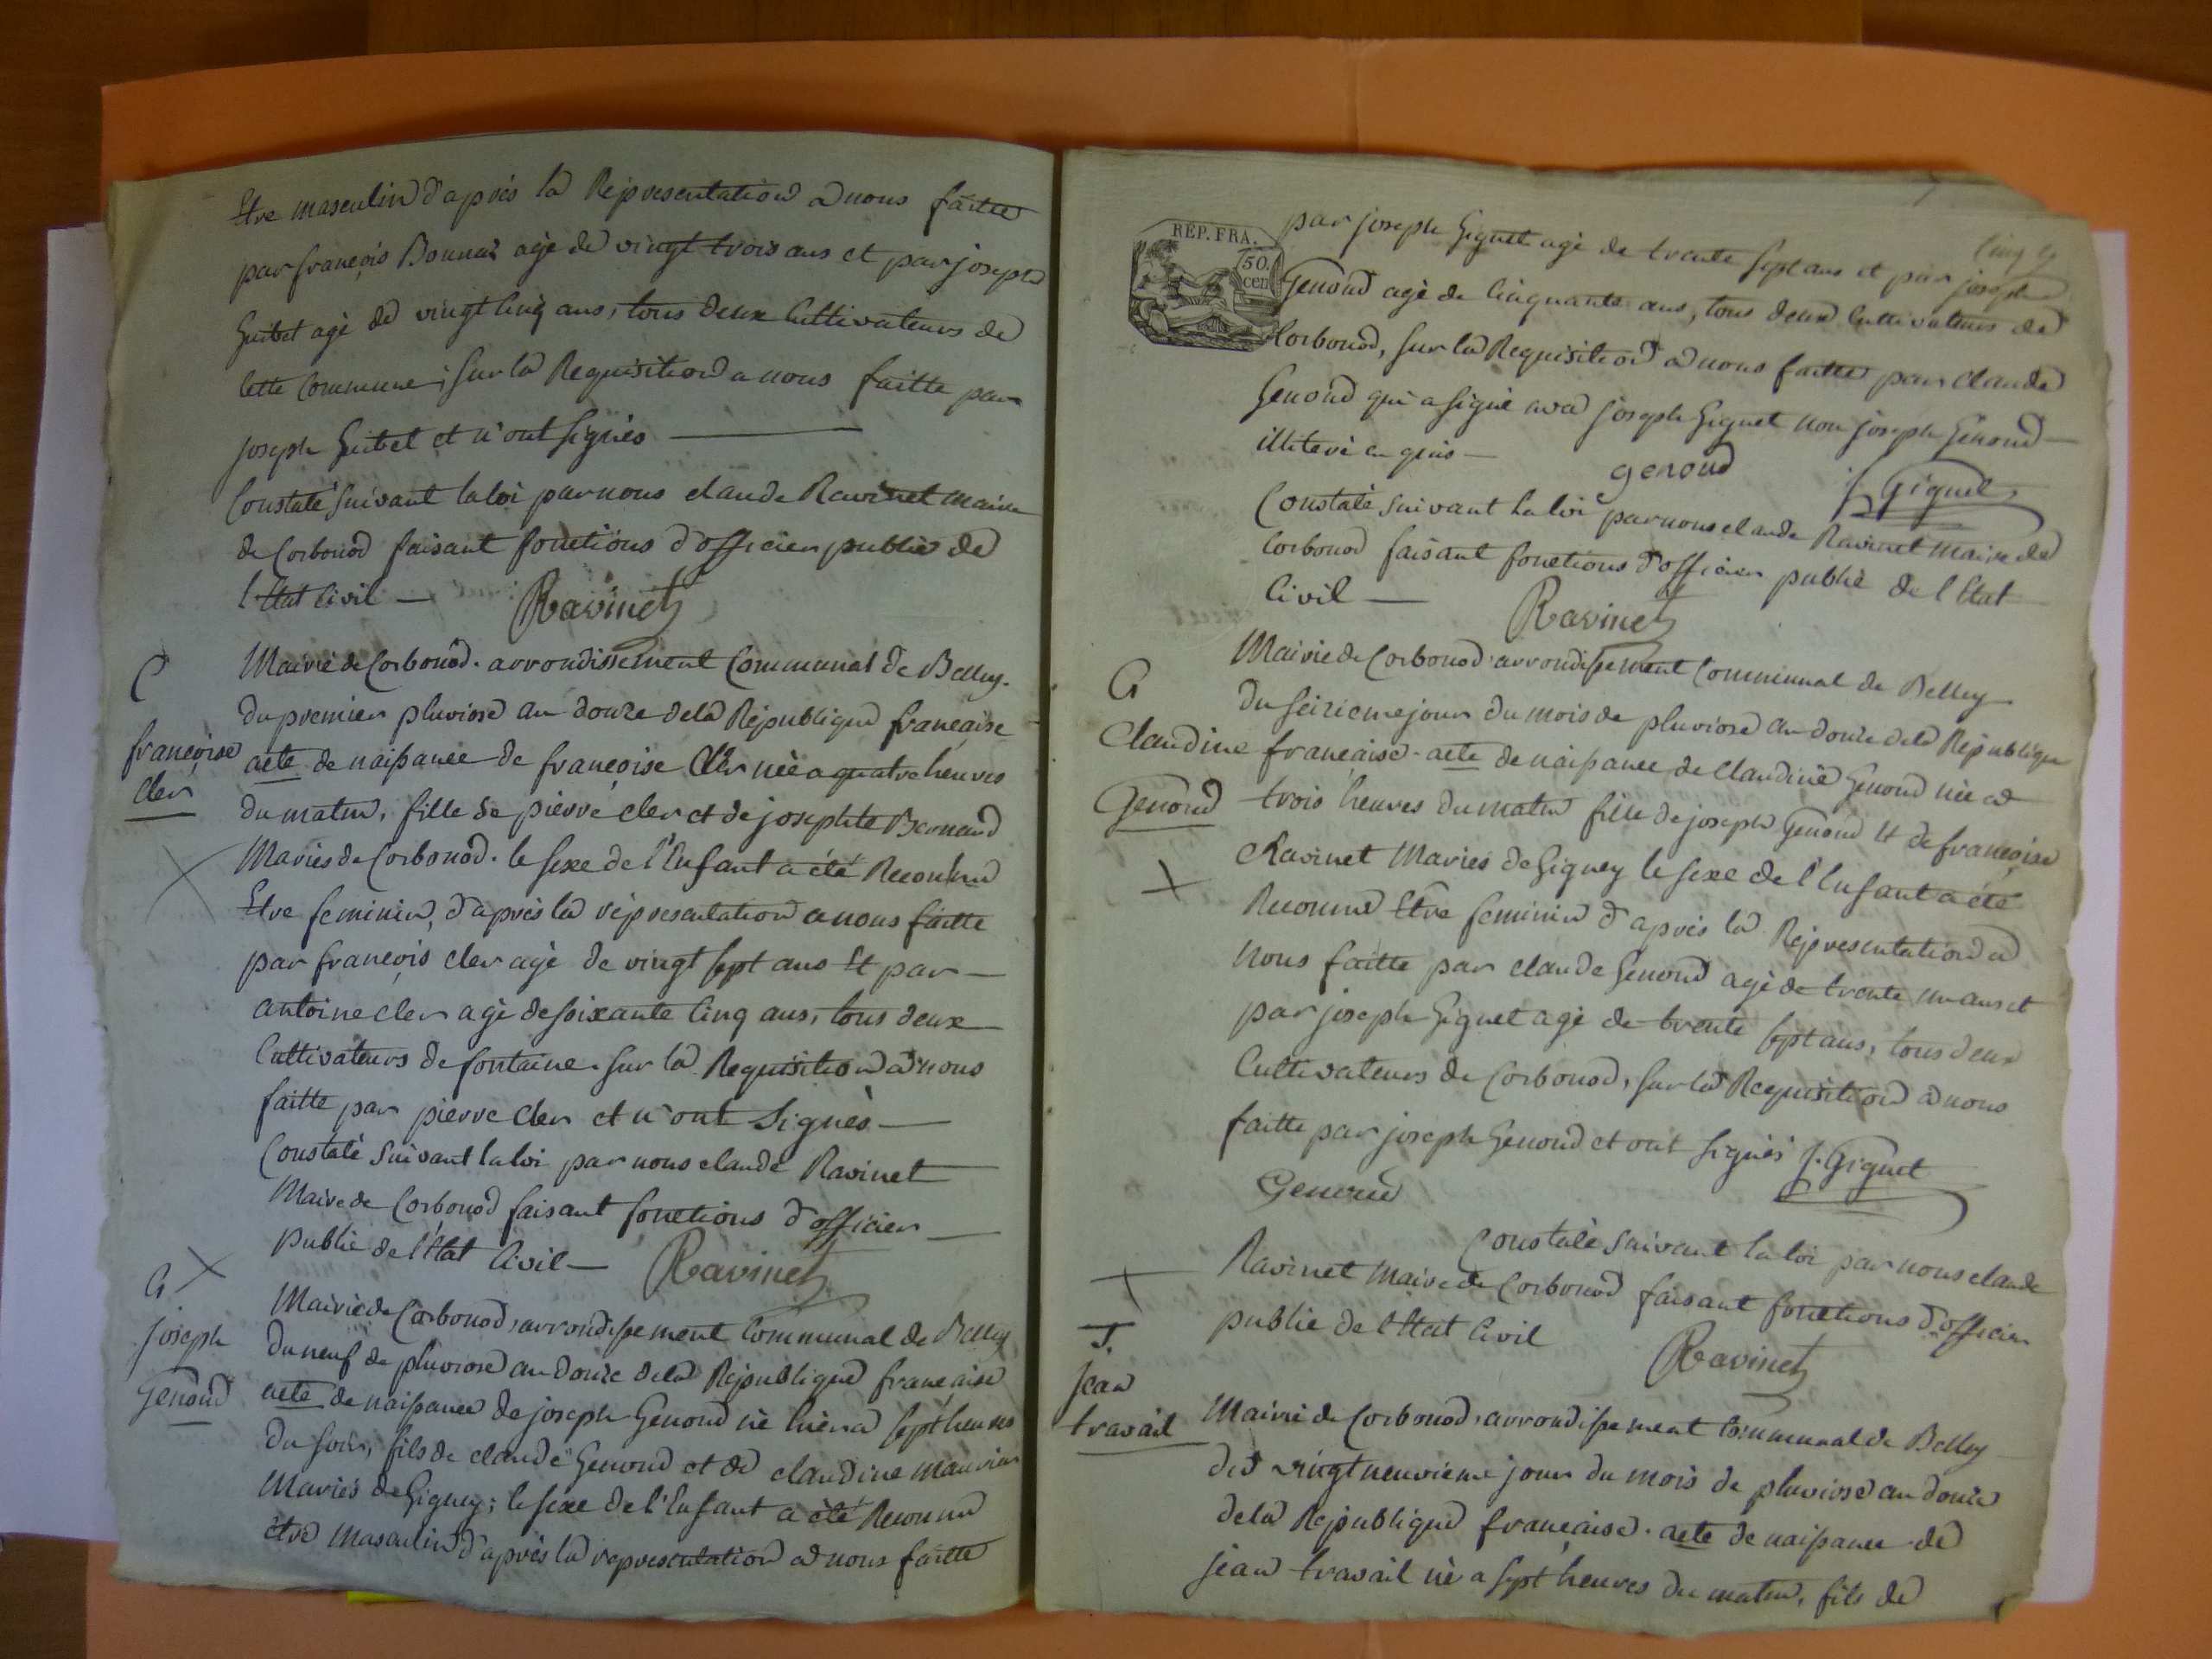 Etre masculin d'après la Représentation a nous faitte
par françois Bonnaz agé de vingt trois ans et par joseph
Guibet agé de vingt cinq ans, tous deux Cultivateurs de
Cette Commune; sur la Requisition a nous faitte par
joseph Guibet et n'ont signés
Constaté suivant la loi par nous claude Ravinet maire
de Corbonod faisant fonctions d'officier public de
l'Etat Civil — Ravinet
C
françoise
Cler
Mairie de Corbonod. arrondissement Communal de Belley.
du premier pluviose an douze dela République française
acte de naissance de françoise Cler née a quatre heures
du matin, fille de pierre cler et de josephte Bernard
Mariés de Corbonod. le sexe de l'Enfant a été Reconnu
Etre feminin, d'après la représentation a nous faitte
par françois cler agé de vingt sept ans Et par —
antoine cler agé de soixante cinq ans, tous deux
Cultivateurs de fontaine. sur la Requisition a nous
faitte par pierre Cler et n'ont signés —
Constaté suivant la loi par nous claude Ravinet
Maire de Corbonod faisant fonctions d'officier —
public de l'Etat Civil — Ravinet
G
joseph
Genoud
Mairie de Corbonod, arrondissement Communal de Belley
du neuf de pluviose an douze dela République française
acte de naissance de joseph Genoud né hier a sept heures
du soir, fils de claude Genoud et de claudine mauvier
Mariés de Gigney; le sexe de l'Enfant a été Reconnu
être masculin d'après la représentation a nous faitte
RÉP. FRA.
50.
cen
Cinq
par joseph Giguet agé de trente sept ans et par joseph
Genoud agé de Cinquante ans, tous deux Cultivateurs de
Corbonod, sur la Requisition a nous faitte par claude
Genoud qui a signé avec joseph Giguet non joseph Genoud —
illiteré enquis —
genoud J. Giguet
Constaté suivant la loi par nous claude Ravinet maire de
Corbonod faisant fonctions d'officier public de l'Etat
Civil — Ravinet
G
Claudine
Genoud
Mairie de Corbonod arrondissement Communal de Belley
du seizieme jour du mois de pluviose an douze dela République
française - acte de naissance de Claudine Genoud née a
trois heures du matin fille de joseph Genoud Et de françoise
Ravinet Mariés de Gigney le sexe de l'Enfant a été
Reconnu Etre feminin d'après la Représentation a
Nous faitte par claude Genoud agé de trente un ans et
par joseph Giguet agé de trente sept ans, tous deux
Cultivateurs de Corbonod, sur la Requisition a nous
faitte par joseph Genoud et ont signés J. Giguet
Genoud
Constaté suivant la loi par nous claude
Ravinet maire de Corbonod faisant fonctions d'officier
public de l'Etat Civil
Ravinet
T.
jean
travail
Mairie de Corbonod, arrondissement Communal de Belley
du vingt neuvieme jour du mois de pluviose an douze
dela République française. acte de naissance de
jean travail né a sept heures du matin, fils de